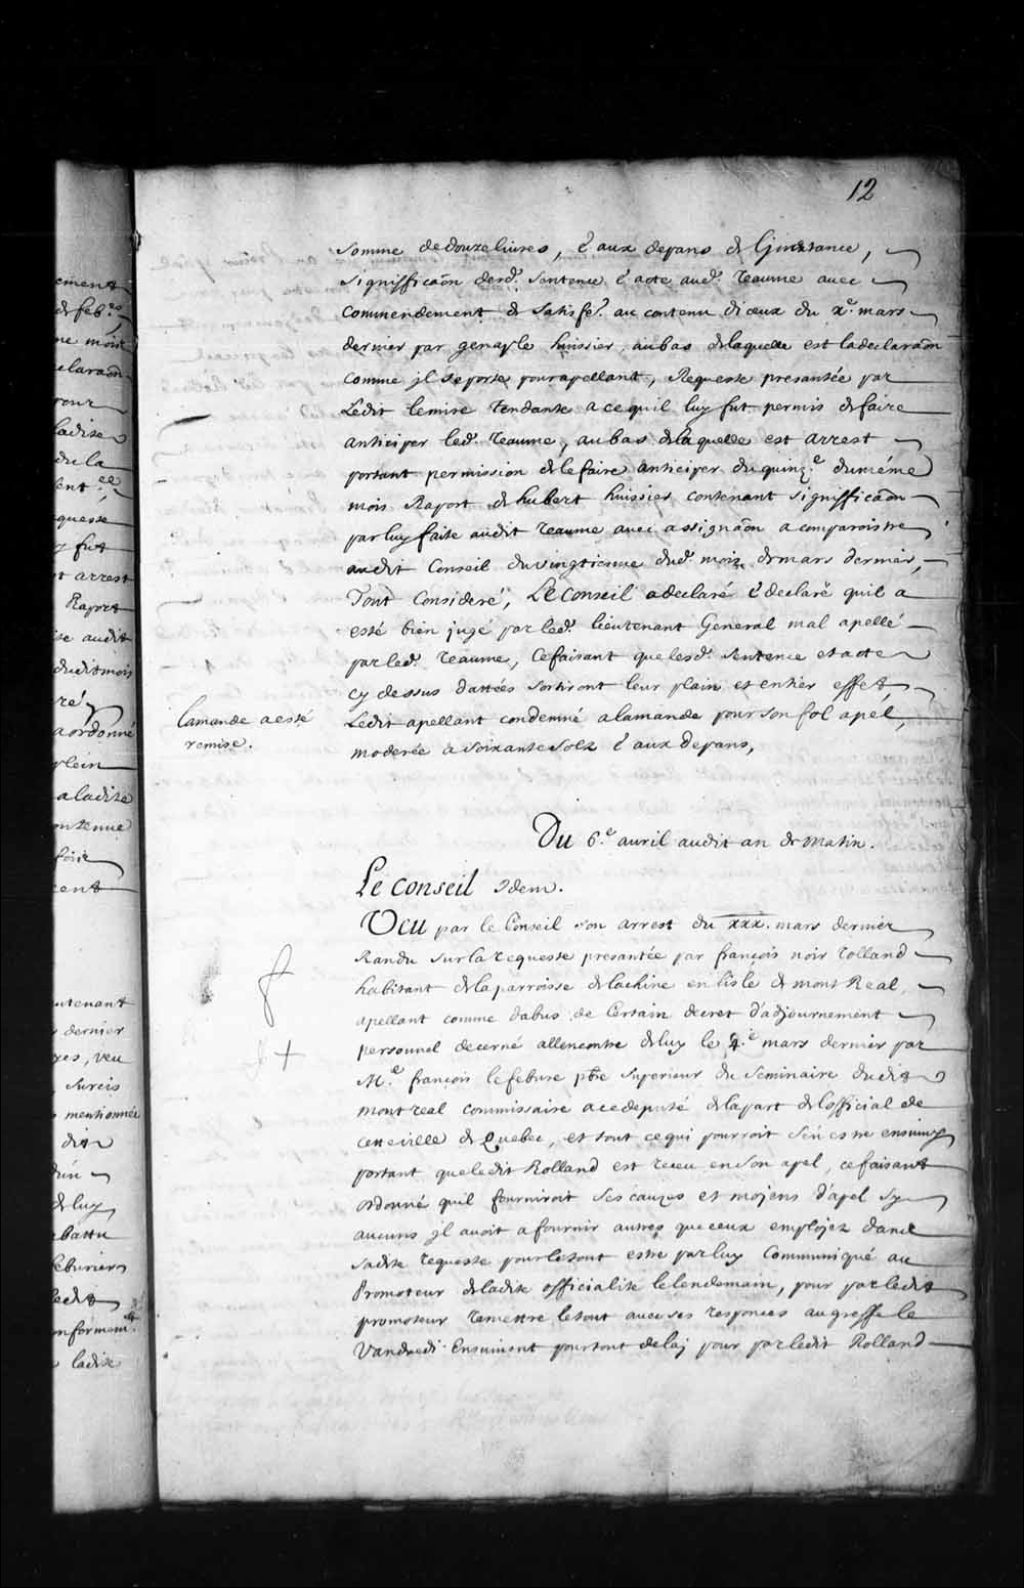 12
somme de douze livres, & aux depans de Ljnstance,
signifficaōn desd. sentence & acte aud. Reaume avec
commendement de satisfe. au contenu diceux du x.e mars
dernier par genaple huissier, au bas delaquelle est la declaraōn
comme jl se porte pour apellant, Requeste presantée par
Ledit Lemire tendante a ce quil luy fut permis de faire
anticiper led. Reaume, au bas delaquelle est arrest
portant permission de le faire anticiper du quinz.e du méme
mois Raport de hubert huissier contenant signifficaōn
par luy faite audit Reaume avec assignaōn a comparoistre
audit Conseil du vingtiesme dud. mois de mars dernier,
Tout Consideré, Le Conseil a declaré & declare quil a
esté bien jugé par led. lieutenant General mal apellé
par led. Reaume, Ce faisant que lesd. sentence et acte
cy dessus dattées sortiront leur plain et entier effet,
Ledit apellant condemné a lamande pour son fol apel,
moderée a soixante solz & aux depans,
Lamande a esté
remise.
Du 6.e avril audit an de matin.
Le Conseil Idem.
Veu par le Conseil son arrest du xxx. mars dernier
Randu sur la requeste presantée par françois noir Rolland
habitant de la parroisse de lachine en lisle de mont Real,
apellant comme dabus de Certain decret d'adjournement
personnel decerné allencontre de luy le 4.e mars dernier par
M.e françois lefebure ptre Superieur du Seminaire dudit
montreal commissaire a ce deputé de la part de lofficial de
cette ville de Quebec, et tout ce qui pourroit s'en estre ensuivy
portant que ledit Rolland est receu en son apel, ce faisant
ordonné quil fourniroit ses causes et moyens d'apel sy
aucuns jl avoit a fournir autres que ceux employez dans
sadite requeste pour le tout estre par luy Communiqué au
Promoteur de ladite officialite le lendemain, pour par ledit
promoteur remettre le tout avec ses responces au greffe le
Vandredi Ensuivant pour tout delaj pour par ledit Rolland